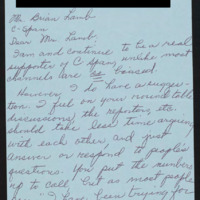 Mr. Brian Lamb
C-Span
Dear Mr. Lamb.
I am and continue to be a real
supporter of C Span, unlike most
channels are so biased.
However, I do have a sugges-
tion. I feel on your round table
discussions, the reporters, etc.
should take less time arguing
with each other, and just
answer or respond to people's
questions. You put the numbers
up to call, but as most people
say "I have been trying for